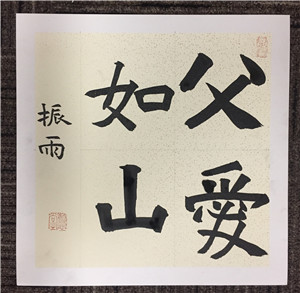 父愛
如山
振雨